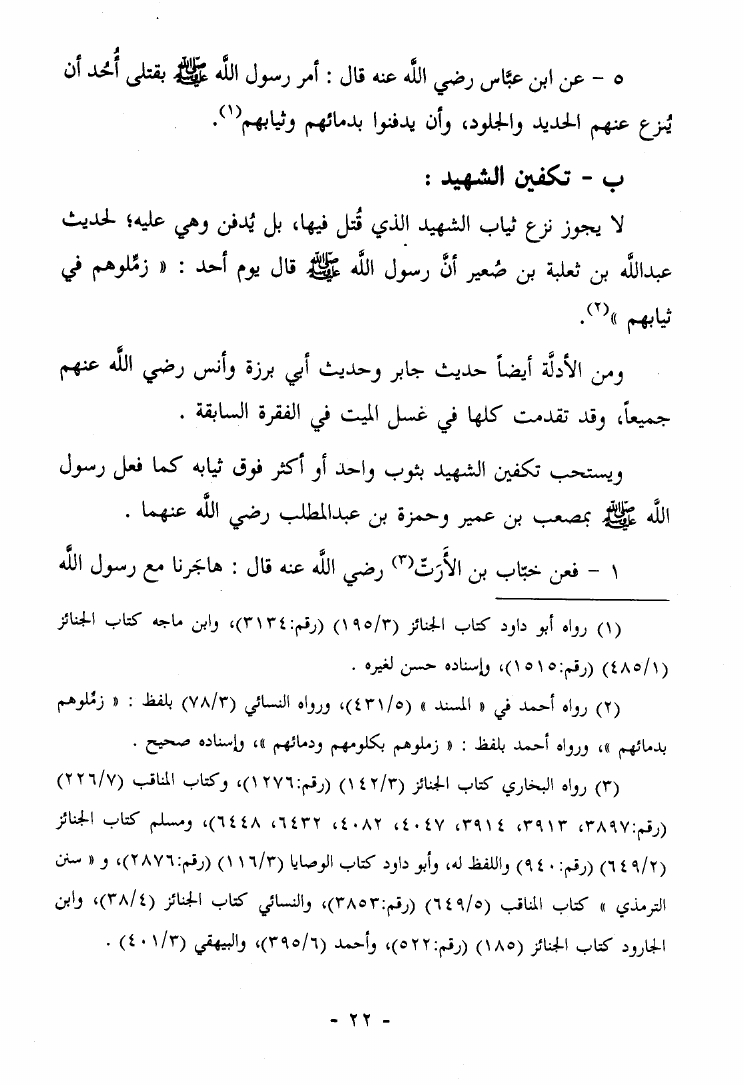 ٥ - عن ابن عبَّاس رضي اللَّه عنه قال : أمر رسول اللَّه ﷺ بقتلى أُحُد أن
يُنزع عنهم الحديد والجلود، وأن يدفنوا بدمائهم وثيابهم(١).
ب - تكفين الشهيد :
لا يجوز نزع ثياب الشهيد الذي قُتل فيها، بل يُدفن وهي عليه؛ لحديث
عبداللَّه بن ثعلبة بن صُعير أنَّ رسول اللَّه ﷺ قال يوم أحد : « زمِّلوهم في
ثيابهم »(٢).
ومن الأدلَّة أيضاً حديث جابر وحديث أبي برزة وأنس رضي اللَّه عنهم
جميعاً، وقد تقدمت كلها في غسل الميت في الفقرة السابقة .
ويستحب تكفين الشهيد بثوب واحد أو أكثر فوق ثيابه كما فعل رسول
اللَّه ﷺ بمصعب بن عمير وحمزة بن عبدالمطلب رضي اللَّه عنهما .
١ - فعن خبّاب بن الأَرَتّ(٣) رضي اللَّه عنه قال : هاجَرنا مع رسول اللَّه
(١) رواه أبو داود كتاب الجنائز (١٩٥/٣) (رقم:٣١٣٤)، وابن ماجه كتاب الجنائز
(٤٨٥/١) (رقم:١٥١٥)، وإسناده حسن لغيره .
(٢) رواه أحمد في « المسند » (٤٣١/٥)، ورواه النسائي (٧٨/٣) بلفظ : « زمِّلوهم
بدمائهم »، ورواه أحمد بلفظ : « زملوهم بكلومهم ودمائهم »، وإسناده صحيح .
(٣) رواه البخاري كتاب الجنائز (١٤٢/٣) (رقم:١٢٧٦)، وكتاب المناقب (٢٢٦/٧)
(رقم:٣٨٩٧، ٣٩١٣، ٣٩١٤، ٤٠٤٧، ٤٠٨٢، ٦٤٣٢، ٦٤٤٨)، ومسلم كتاب الجنائز
(٦٤٩/٢) (رقم:٩٤٠) واللفظ له، وأبو داود كتاب الوصايا (١١٦/٣) (رقم:٢٨٧٦)، و « سنن
الترمذي » كتاب المناقب (٦٤٩/٥) (رقم:٣٨٥٣)، والنسائي كتاب الجنائز (٣٨/٤)، وابن
الجارود كتاب الجنائز (١٨٥) (رقم:٥٢٢)، وأحمد (٣٩٥/٦)، والبيهقي (٤٠١/٣) .
- ٢٢ -